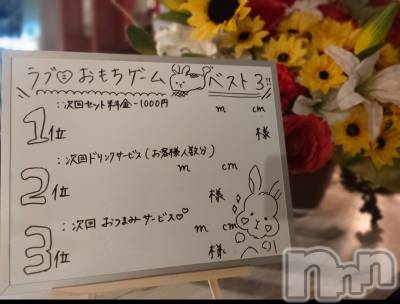 ラブ♡おもちゲーム ベスト3!!
1位 :次回セット料金-1000円
m cm
様
2位 :次回ドリンクサービス(お客様人数分)
m cm
様
3位 :次回 おつまみサービス♡♡
m cm
様
nnn